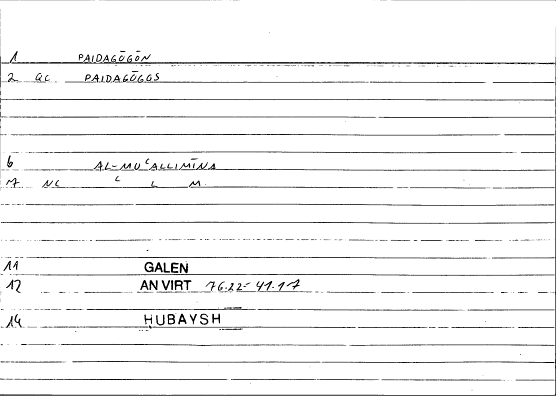 1 PAIDAGŌGŌN
2 GC PAIDAGŌGOS
6 AL-MUᶜALLIMĪNA
17 NC ᶜ L M
11 GALEN
12 AN VIRT 76.22-41.17
14 ḤUBAYSH